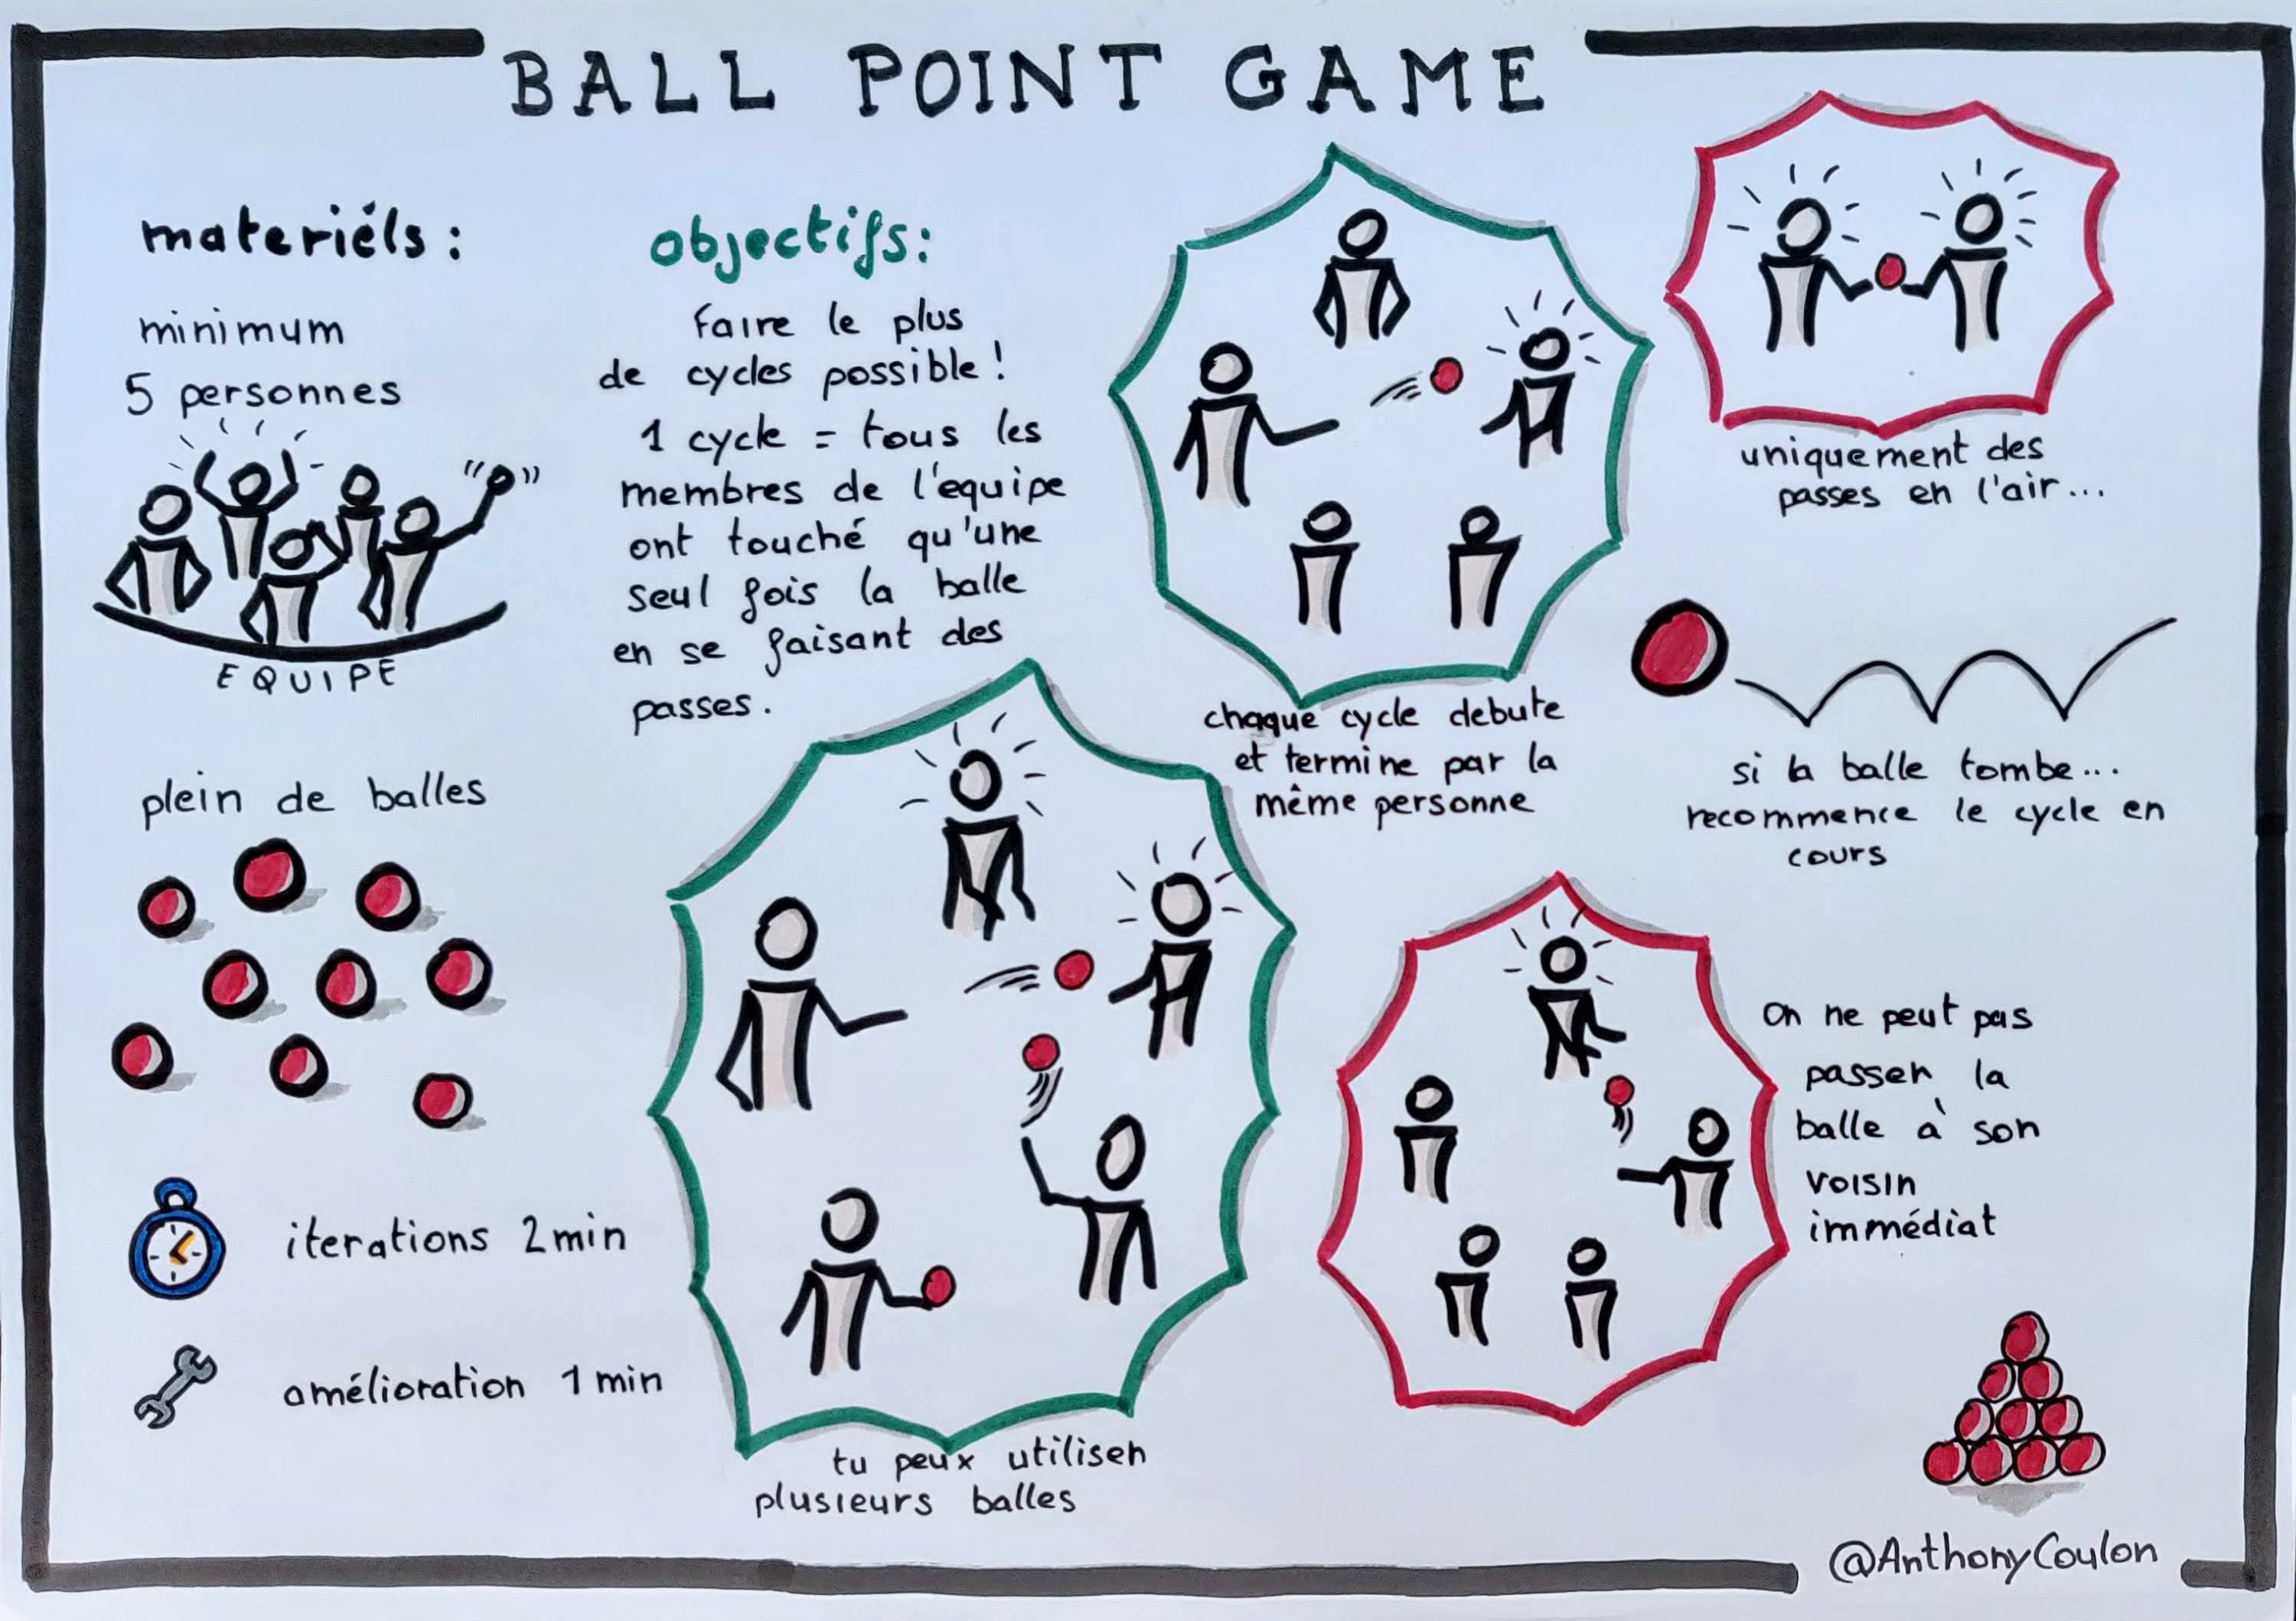 BALL POINT GAME
materiéls :
minimum
5 personnes
EQUIPE
plein de balles
iterations 2 min
amélioration 1 min
objectifs :
faire le plus
de cycles possible !
1 cycle = tous les
membres de l'equipe
ont touché qu'une
seul fois la balle
en se faisant des
passes .
chaque cycle debute
et termine par la
même personne
tu peux utiliser
plusieurs balles
uniquement des
passes en l'air...
si la balle tombe...
recommence le cycle en
cours
On ne peut pas
passer la
balle à son
voisin
immédiat
@AnthonyCoulon